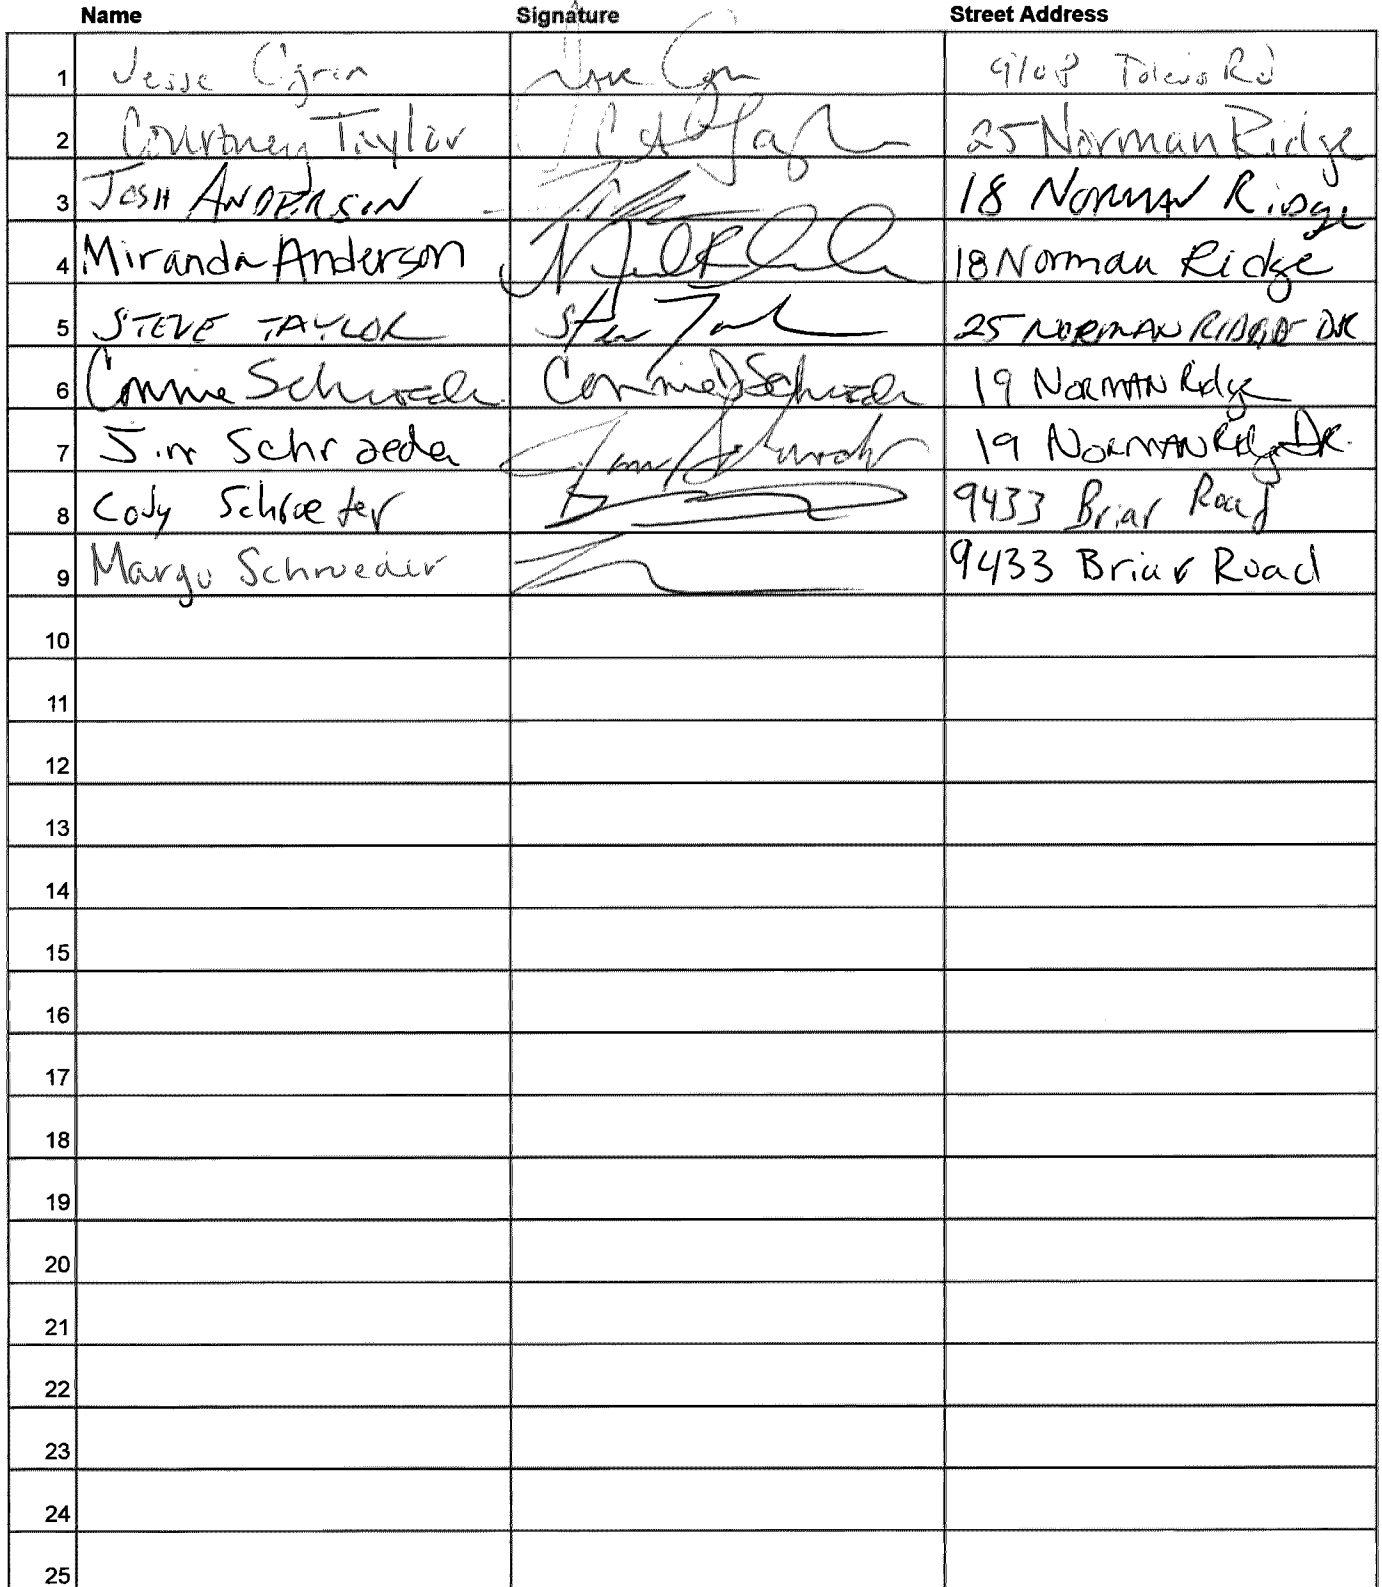 Name Signature Street Address
1 Jesse 9108 Rd
2 Courtney Taylor 25 Norman Ridge
3 JOSH ANDERSON 18 NORMAN RIDge
4 Miranda Anderson 18 Norman Ridge
5 STEVE TAYLOR Steve 25 NORMAN RIDGE DR
6 Connie Schroeder Connie J Schroeder 19 NORMAN Ridge
7 Jim Schroeder Jim Schroeder 19 NORMAN Ridge DR.
8 Cody Schroeter 9433 Briar Road
9 Margo Schroeder 9433 Briar Road
10
11
12
13
14
15
16
17
18
19
20
21
22
23
24
25